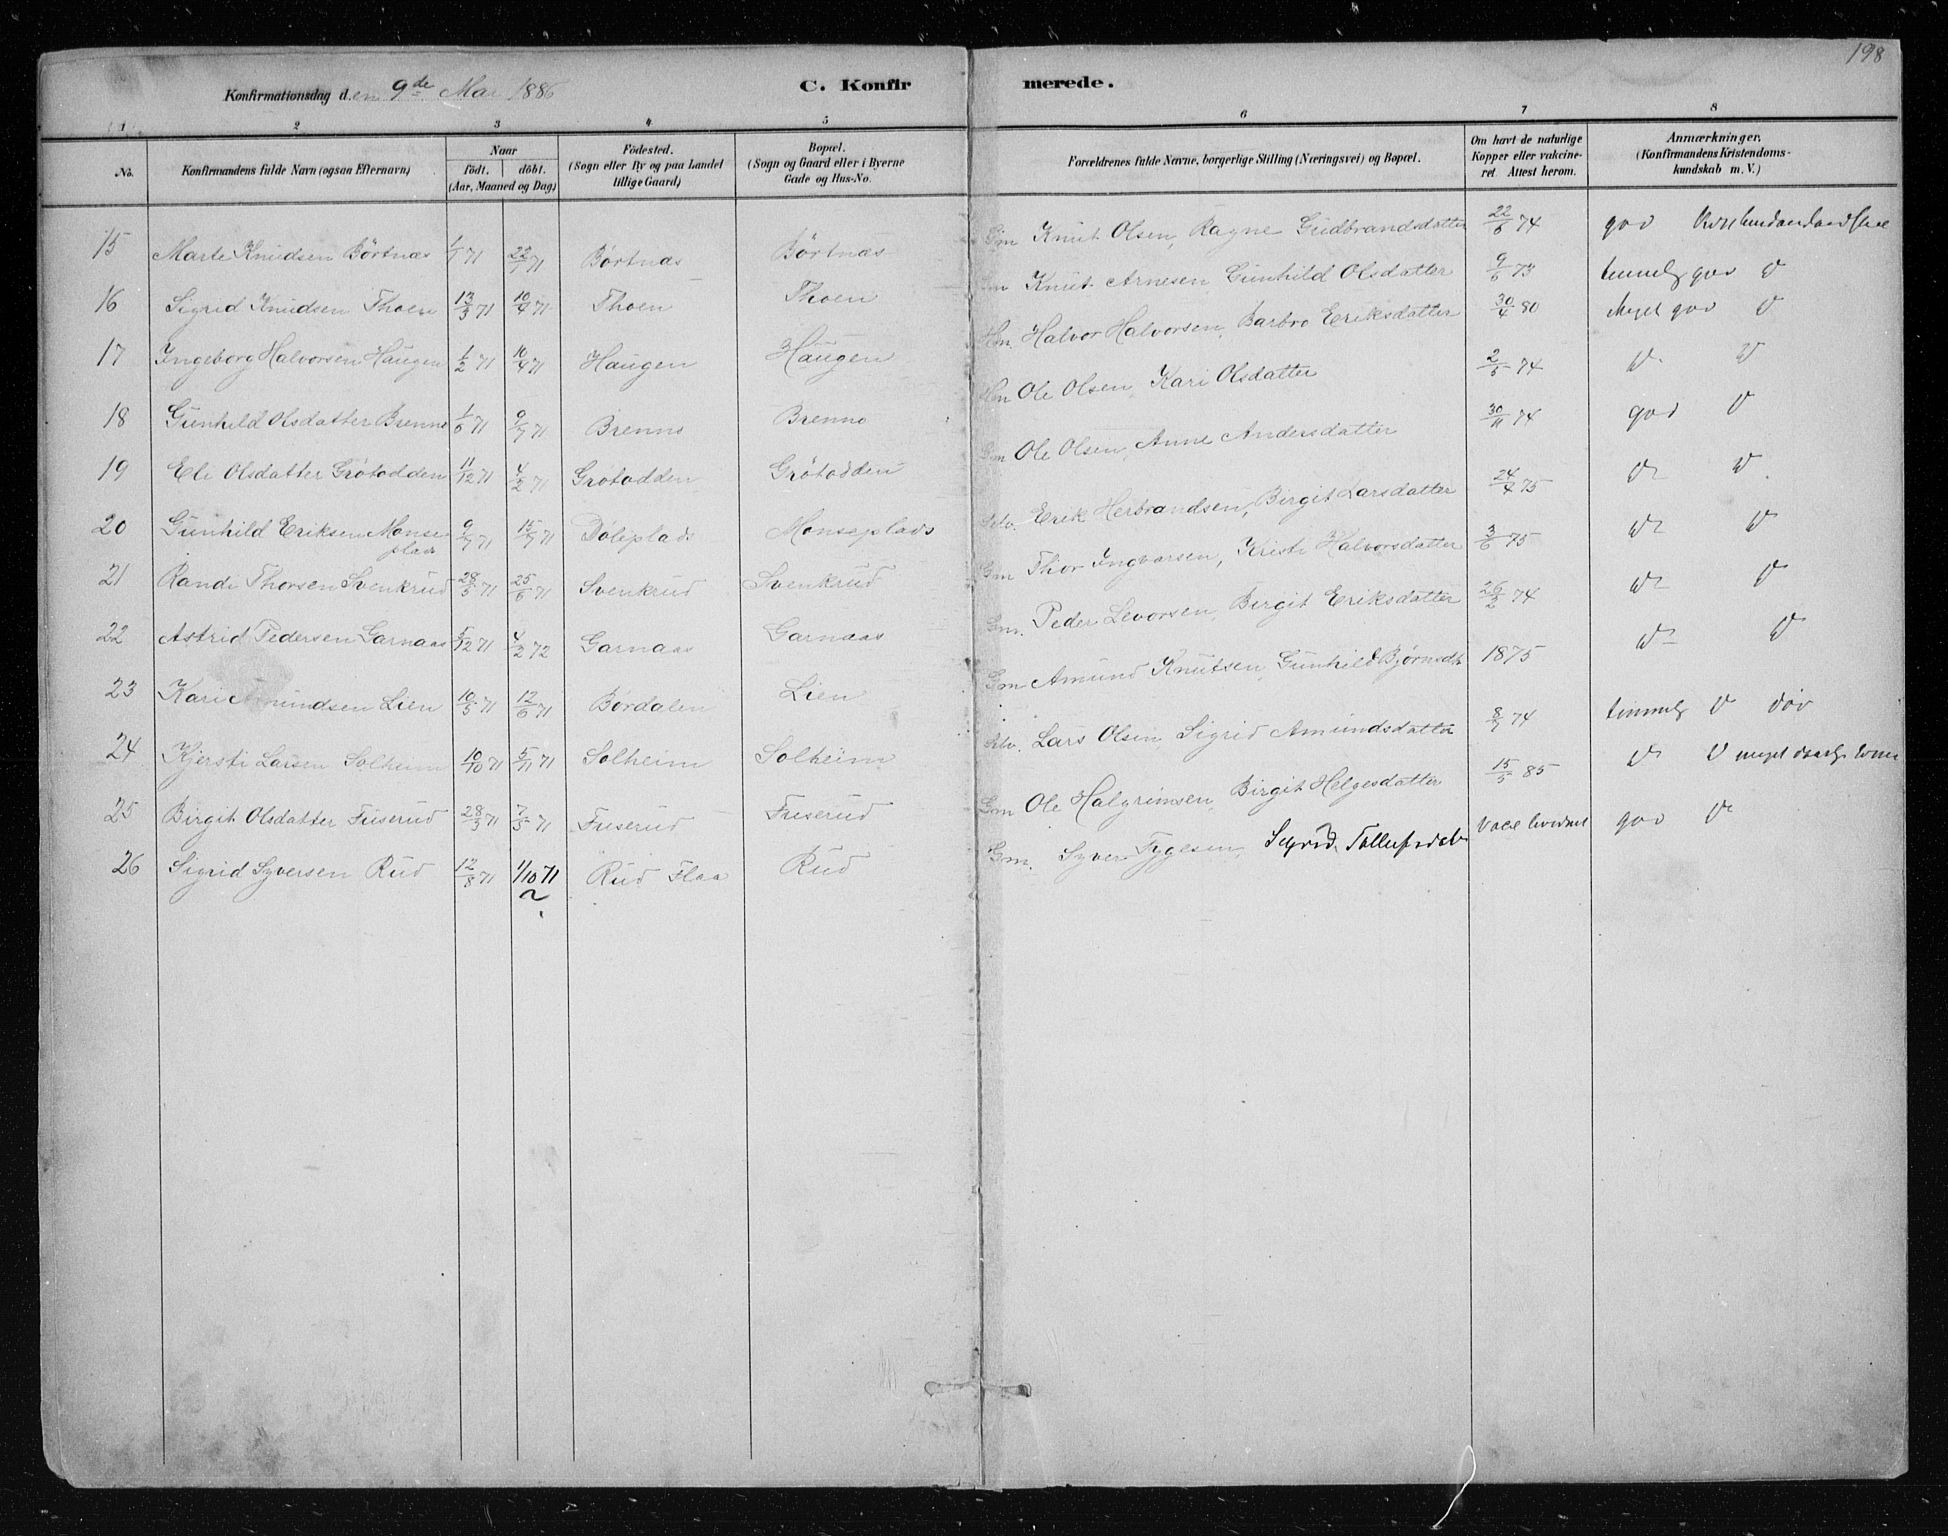 198
Konfirmationsdag den 9de Mai 1886 C. Konfirmerede.
1 2 3 4 5 6 7 8
No. Konfirmandens fulde Navn (ogsaa Efternavn) Naar födt. döbt. (Aar, Maaned og Dag) Födested. (Sogn eller By og paa Landet tillige Gaard) Bopæl. (Sogn og Gaard eller i Byerne Gade og Hus-No. Forældrenes fulde Navne, borgerlige Stilling (Næringsvei) og Bopæl. Om havt de naturlige Kopper eller vakcineret. Attest herom. Anmærkninger. (Konfirmandens Kristendomskundskab m. V.)
15 Marte Knudsen Börtnæs 1/1 71 22/1 71 Börtnæs Börtnæs Gm Knut Olsen, Ragne Gudbrandsdatter 22/6 74 god
16 Sigrid Knudsen Thoen 13/3 71 10/4 71 Thoen Thoen Gm Knut Arnesen Gunhild Olsdatter 9/6 73 temmelig god
17 Ingeborg Halvorsen Haugen 1/2 71 10/4 71 Haugen Haugen Hm. Halvor Halvorsen, Barbro Eriksdatter 30/4 80 Meget god
18 Gunhild Olsdatter Brenno 1/6 71 9/7 71 Brenno Brenno Hm Ole Olsen, Kari Olsdatter 2/5 74
19 Eli Olsdatter Grötodden 11/12 71 4/2 71 Grötodden Grötodden Gm Ole Olsen, Anne Andersdatter 30/11 74 god
20 Gunhild Eriksen Monseplads 9/7 71 15/7 71 Döleplads Monseplads Selv. Erik Herbrandsen, Birgit Larsdatter 24/4 75
21 Randi Thorsen Svenkrud 28/5 71 25/6 71 Svenkrud Svenkrud Gm Thor Ingvarsen, Kristi Halvorsdatter 3/6 75
22 Astrid Pedersen Garnaas 5/12 71 4/2 72 Garnaas Garnaas Gm. Peder Levorsen, Birgit Eriksdatter 26/2 74
23 Kari Amundsen Lien 10/5 71 12/6 71 Bördalen Lien Gm Amund Knutsen, Gunhild Björnsdt. 1875
24 Kjersti Larsen Solheim 10/10 71 5/11 71 Solheim Solheim Selv. Lars Olsen, Sigrid Amundsdatter 8/7 74 temmelig döv
25 Birgit Olsdatter Fuserud 28/3 71 7/5 71 Fuserud Fuserud Gm Ole Halgrimsen, Birgit Helgesdatter 15/5 85 meget daarlig
26 Sigrid Syversen Rud 12/8 71 1/10 71 Rud Flaa Rud Gm. Syver Tygesen, Sigrid god